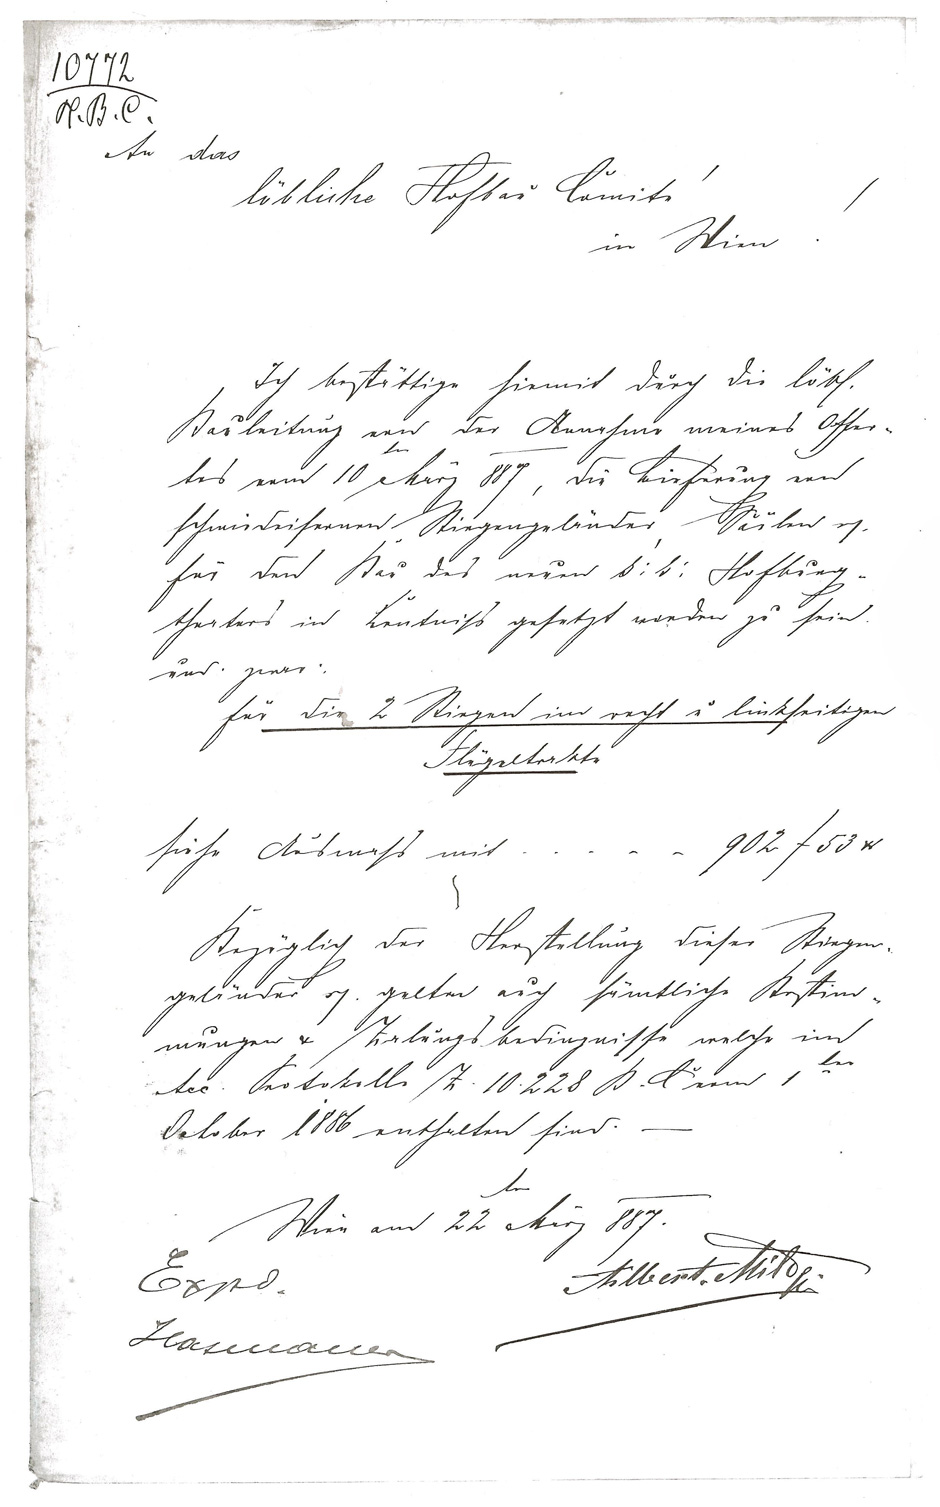 10772
H.B.C.
An das
löbliche Hofbau Comité !
in Wien .
Ich bestättige hiemit durch die löbl.
Bauleitung von der Annahme meines Offer-
tes vom 10ten März 887, die Lieferung von
schmiedeisernen Stiegengeländer, Säulen ec.
für den Bau des neuen k: k: Hofburg-
theaters in Kentniß gesetzt worden zu sein.
und zwar:
für die 2 Stiegen im recht u linkseitigen
Flügeltrakte
siehe Ausmaß mit . . . . . 902 f 53 x
Bezüglich der Herstellung dieser Stiegen-
geländer ec. gelten auch sämtliche Bestim-
mungen & Zalungsbedingnisse welche im
Acc. Protokolle Z. 10.228 B.C vom 1ten
October 1886 enthalten sind. —
Wien am 22ten März 887.
Expd.
Albert Milde
Hasenauer